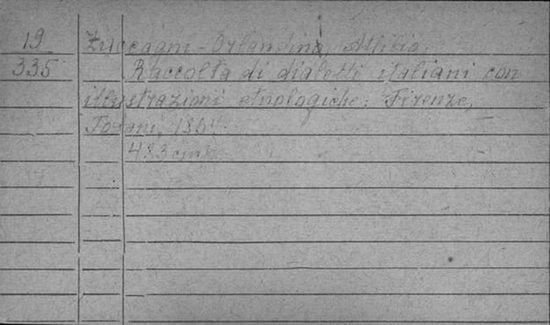 19 Zuccagni-Orlandini, Attilio,
335 Raccolta di dialetti italiani con
illustrazioni etnologiche: Firenze,
Tofani, 1864.
483